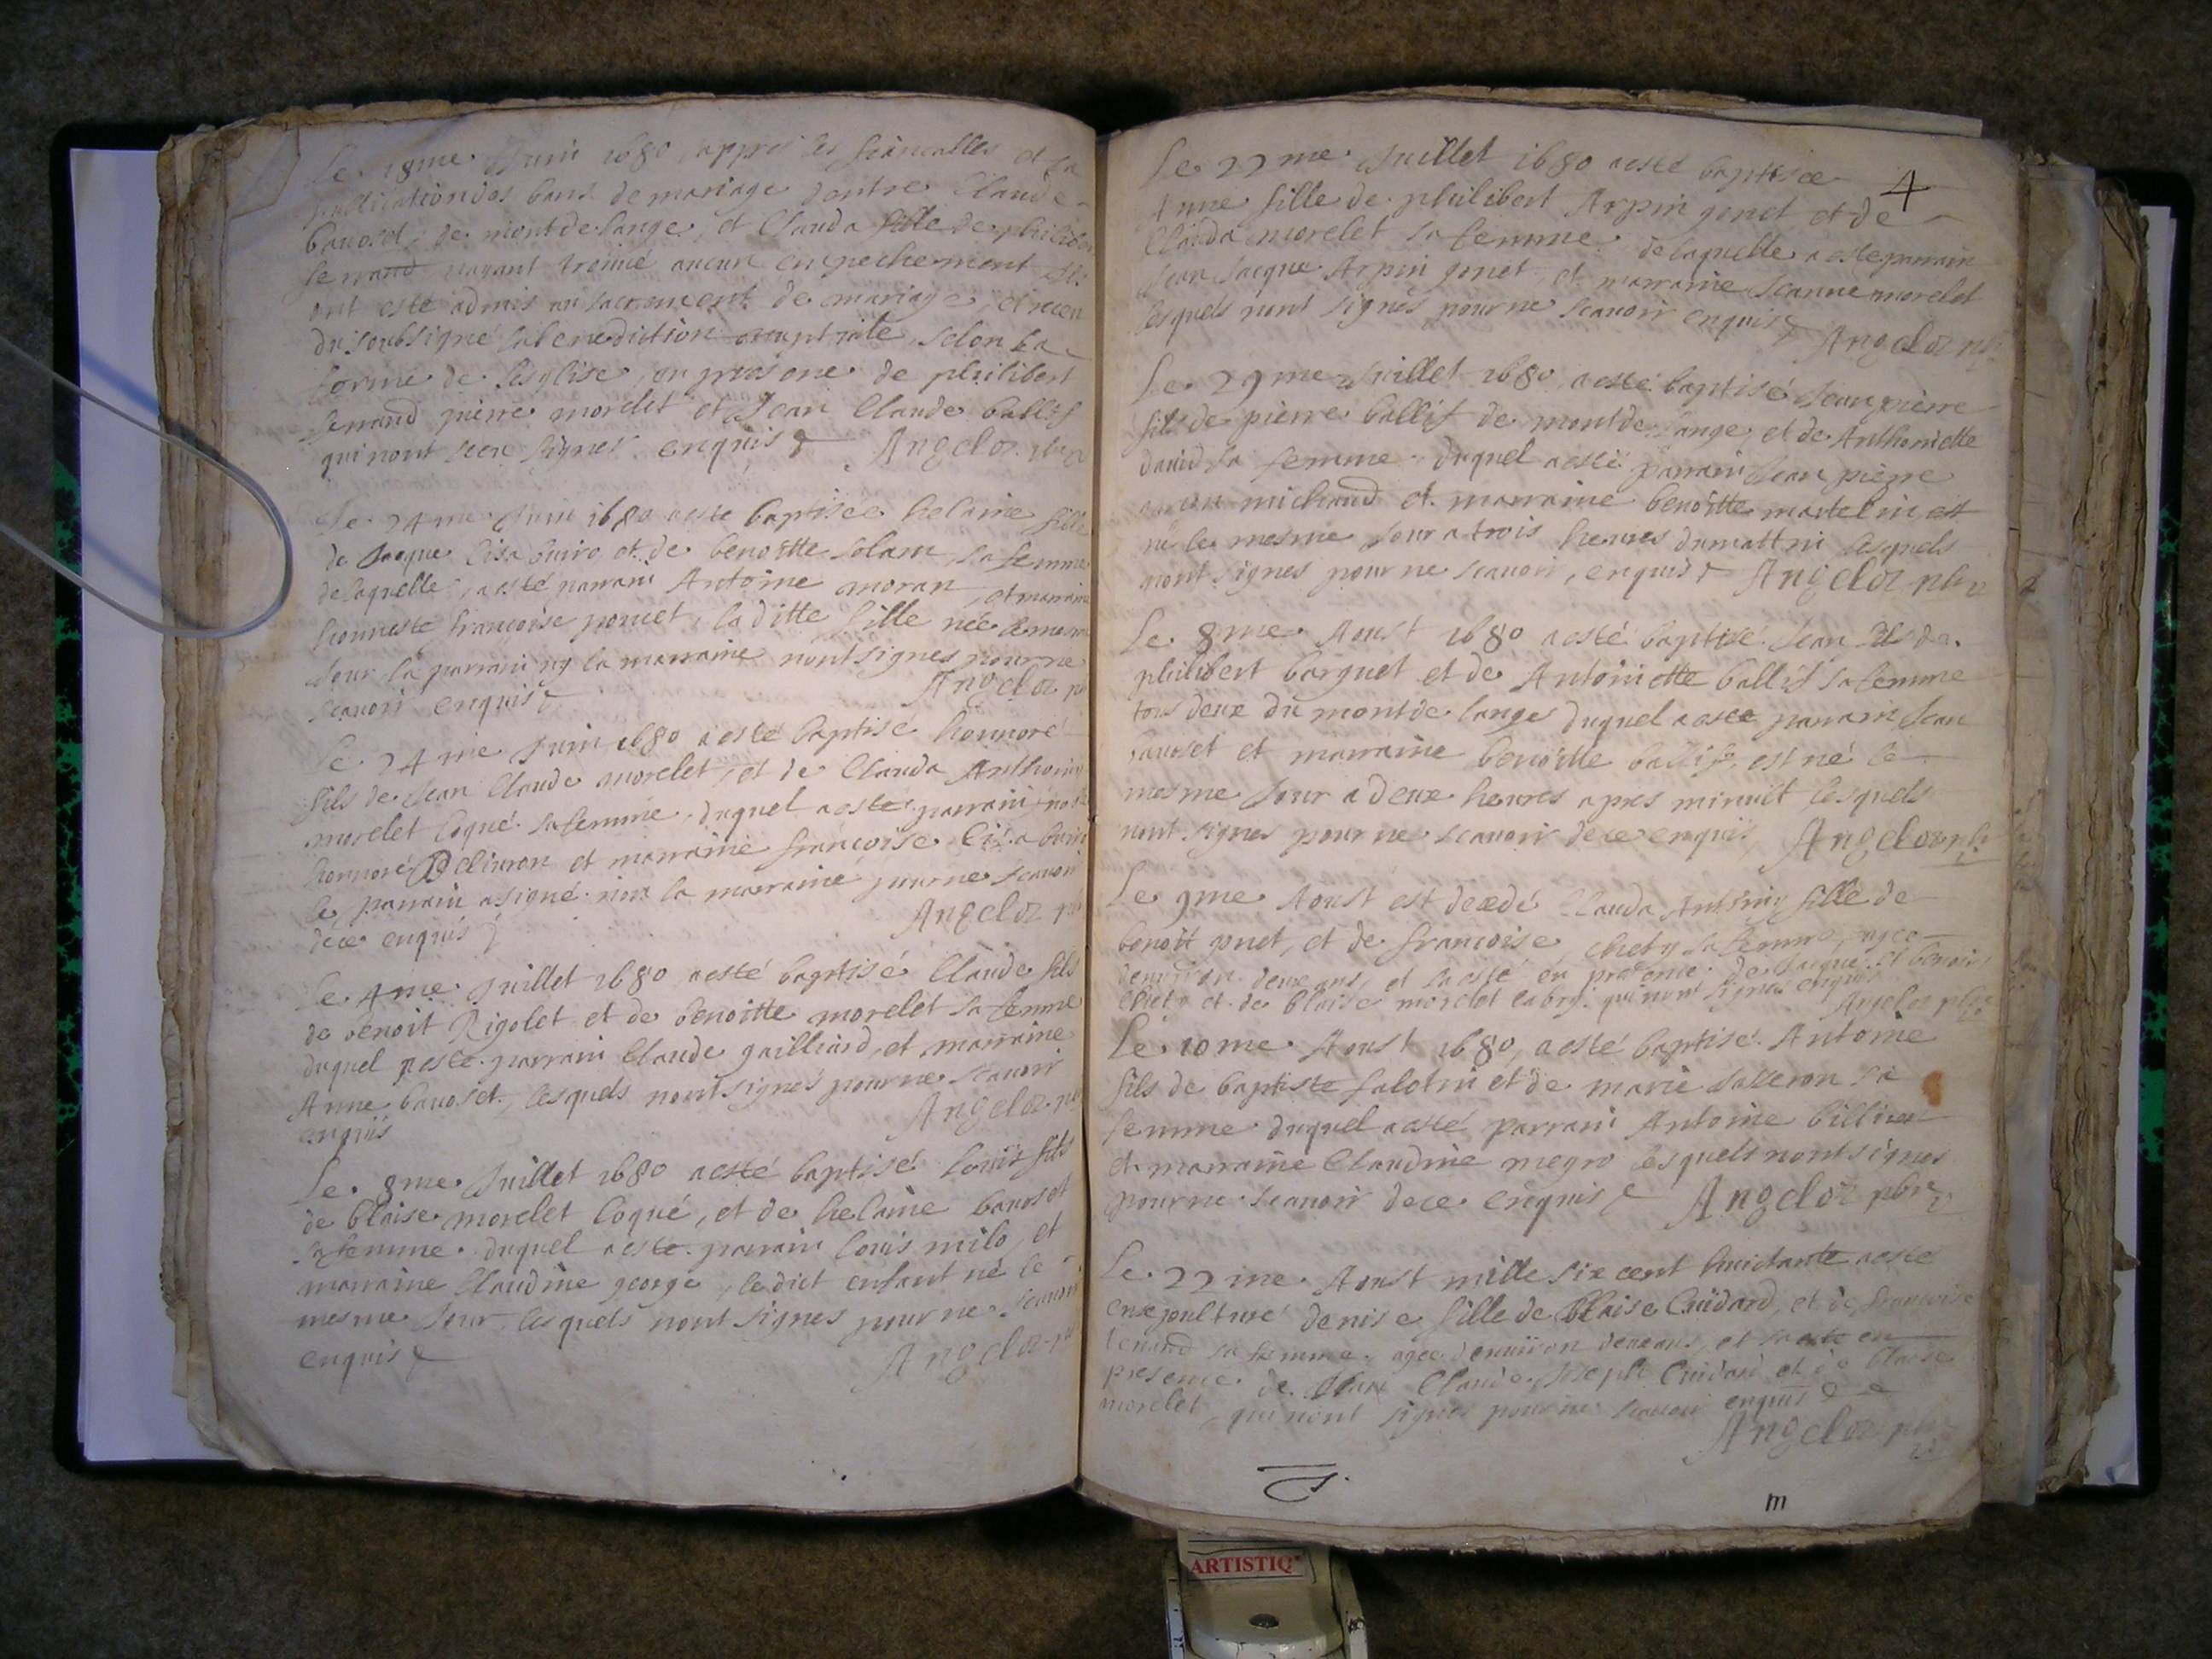 Le 18me Juin 1680 appres les fiancalles et la
publication des bans de mariage dentre Claude
bauoset, de montde lange, et Clauda fille de philibert
nayant treuué aucun empechement ils
ont esté admis au sacrement de mariage, et receu
du soubsigné la benediction nuptiale selon la
forme de lesglise, en presence de philibert
pierre morelet et Jean Claude ballif
qui nont sceu signer enquis Angeloz pbre
Le 24me Juin 1680 a esté baptisée helaine fille
de Jacque et de benoitte solam sa femme
de laquelle a esté parrain Antoine moran, et marraine
honneste francoise poncet, la ditte fille née le mesme
Jour le parrain ny la marraine nont signes pour ne
scauoir enquis Angeloz p
Le 24me Juin 1680 a esté baptisé honnoré
fils de Jean Claude morelet, et de Clauda Anthoiny
morelet Coqué sa femme, duquel a esté parrain
honnoré Deliuron et marraine francoise
le parrain a signé non la marraine pour ne scauoir
de ce enquis Angeloz
Le 4me Juillet 1680 a esté baptisé Claude fils
de benoit Rigolet et de benoitte morelet sa femme
duquel a esté parrain Claude gailliard, et marraine
Anne bauoset, lesquels nont signés pour ne scauoir
enquis Angeloz
Le 8me Juillet 1680 a esté baptisé Louis fils
de blaise morelet Coqué, et de helaine bauoset
sa femme duquel a esté parrain Louis milo, et
marraine Claudine george, ledict enfant né le
mesme Jour lesquels nont signes pour ne scauoir
enquis Angeloz
4
Le 22me Juillet 1680 a esté baptisée
Anne fille de philibert Arpin genet et de
Clauda morelet sa femme de laquelle a esté parrain
Jean Jacque Arpin genet, et marraine Jeanne morelet
lesquels nont signés pour ne scauoir enquis
Angeloz
Le 29me Juillet 1680 a esté baptisé Jean pierre
fils de pierre ballif de montde lange, et de Anthoinette
dauid sa femme duquel a esté parrain Jean pierre
michaud et marraine benoitte martelin, est
né le mesme Jour a trois heures du mattin lesquels
nont signes pour ne scauoir, enquis Angeloz pbre
Le 8me Aoust 1680 a esté baptisé Jean fils de
philibert barguet et de Antoinette ballif sa femme
tous deux du montde lange duquel a esté parrain Jean
bauoset et marraine benoitte ballif, est né le
mesme Jour a deux heures apres minuit lesquels
nont signes pour ne scauoir de ce enquis Angeloz pbre
Le 9me Aoust est decedé Clauda Anthoiny fille de
benoit genet, et de francoise chety sa femme, agee
denuiron deux ans, et sa esté en presence de Jacque et benoit
chety et de blaise morelet qui nont signes enquis
Angeloz pbre
Le 10me Aoust 1680, a esté baptisé Antoine
fils de baptiste et de marie sa
femme duquel a esté parrain Antoine billiuen
et marraine Claudine megro lesquels nont signes
pour ne scauoir de ce enquis Angeloz pbre
Le 22me Aoust mille six cent huictante a esté
ensepulturé denise fille de Blaise Cuidard, et de francoise
sa femme agee denuiron deux ans, et sa esté en
presence de Jean Claude, Joseph Cuidard et de blaise
morelet, qui nont signes pour ne scauoir enquis
Angeloz
m
ARTISTIQ